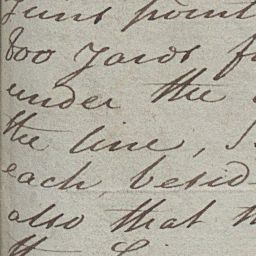 guns point
800 yards f
under the
the line, S
each, besid
also that th
the Li